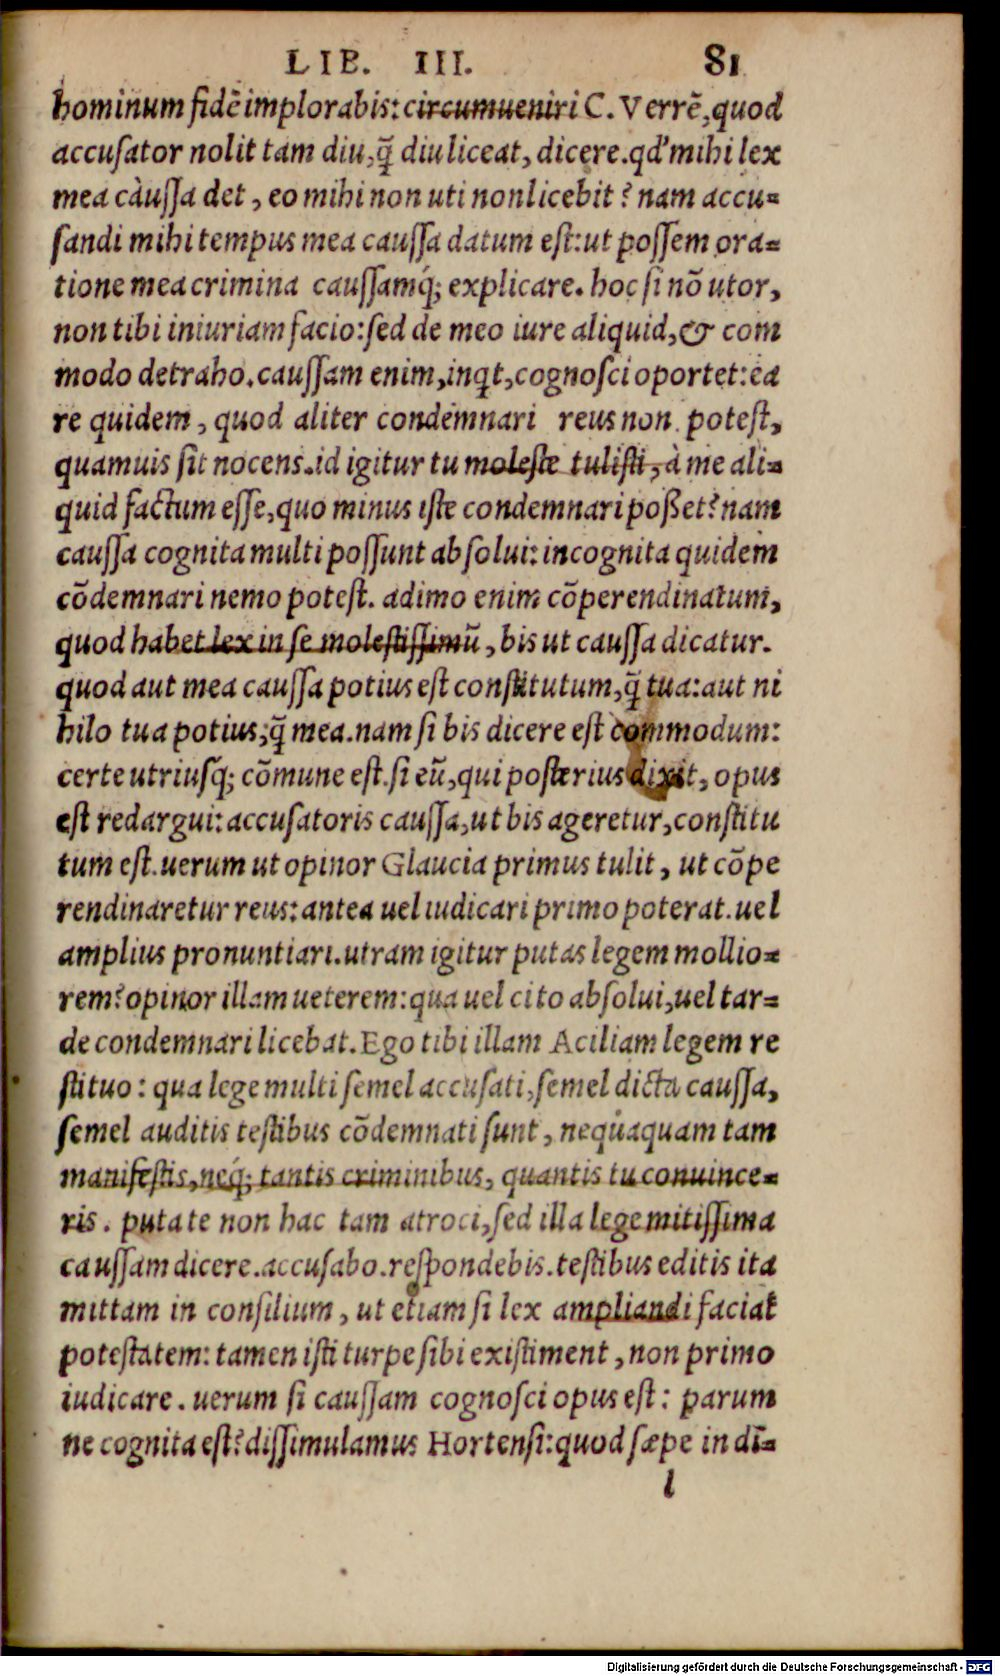 LIB. III. 81
hominum fidē implorabis: circumueniri C. Verrē, quod
accusator nolit tam diu, q̃ diu liceat, dicere. qd' mihi lex
mea càussa det, eo mihi non uti nonlicebit? nam accu-
sandi mihi tempus mea caussa datum est: ut possem ora-
tione mea crimina caussamq́; explicare. hoc si nō utor,
non tibi iniuriam facio: sed de meo iure aliquid, & com
modo detraho. caussam enim, inqt, cognosci oportet: ea
re quidem, quod aliter condemnari reus non potest,
quamuis sit nocens. id igitur tu moleste tulisti, à me ali-
quid factum esse, quo minus iste condemnari poßet? nam
caussa cognita multi possunt absolui: incognita quidem
cōdemnari nemo potest. adimo enim cōperendinatum,
quod habet lex in se molestissimũ, bis ut caussa dicatur.
quod aut mea caussa potius est constitutum, q̃ tua: aut ni
hilo tua potius, q̃ mea. nam si bis dicere est commodum:
certe utriusq́; cōmune est. si eũ, qui posterius dixit, opus
est redargui: accusatoris caussa, ut bis ageretur, constitu
tum est. uerum ut opinor Glaucia primus tulit, ut cōpe
rendinaretur reus: antea uel iudicari primo poterat. uel
amplius pronuntiari. utram igitur putas legem mollio-
rem? opinor illam ueterem: qua uel cito absolui, uel tar-
de condemnari licebat. Ego tibi illam Aciliam legem re
stituo: qua lege multi semel accusati, semel dicta caussa,
semel auditis testibus cōdemnati sunt, nequaquam tam
manifestis, neq́; tantis criminibus, quantis tu conuince-
ris. puta te non hac tam atroci, sed illa lege mitissima
caussam dicere. accusabo. respondebis. testibus editis ita
mittam in consilium, ut etiam si lex ampliandi faciat
potestatem: tamen isti turpe sibi existiment, non primo
iudicare. uerum si caussam cognosci opus est: parum
ne cognita est? dissimulamus Hortensi: quod sæpe in dī-
l
Digitalisierung gefördert durch die Deutsche Forschungsgemeinschaft - DFG